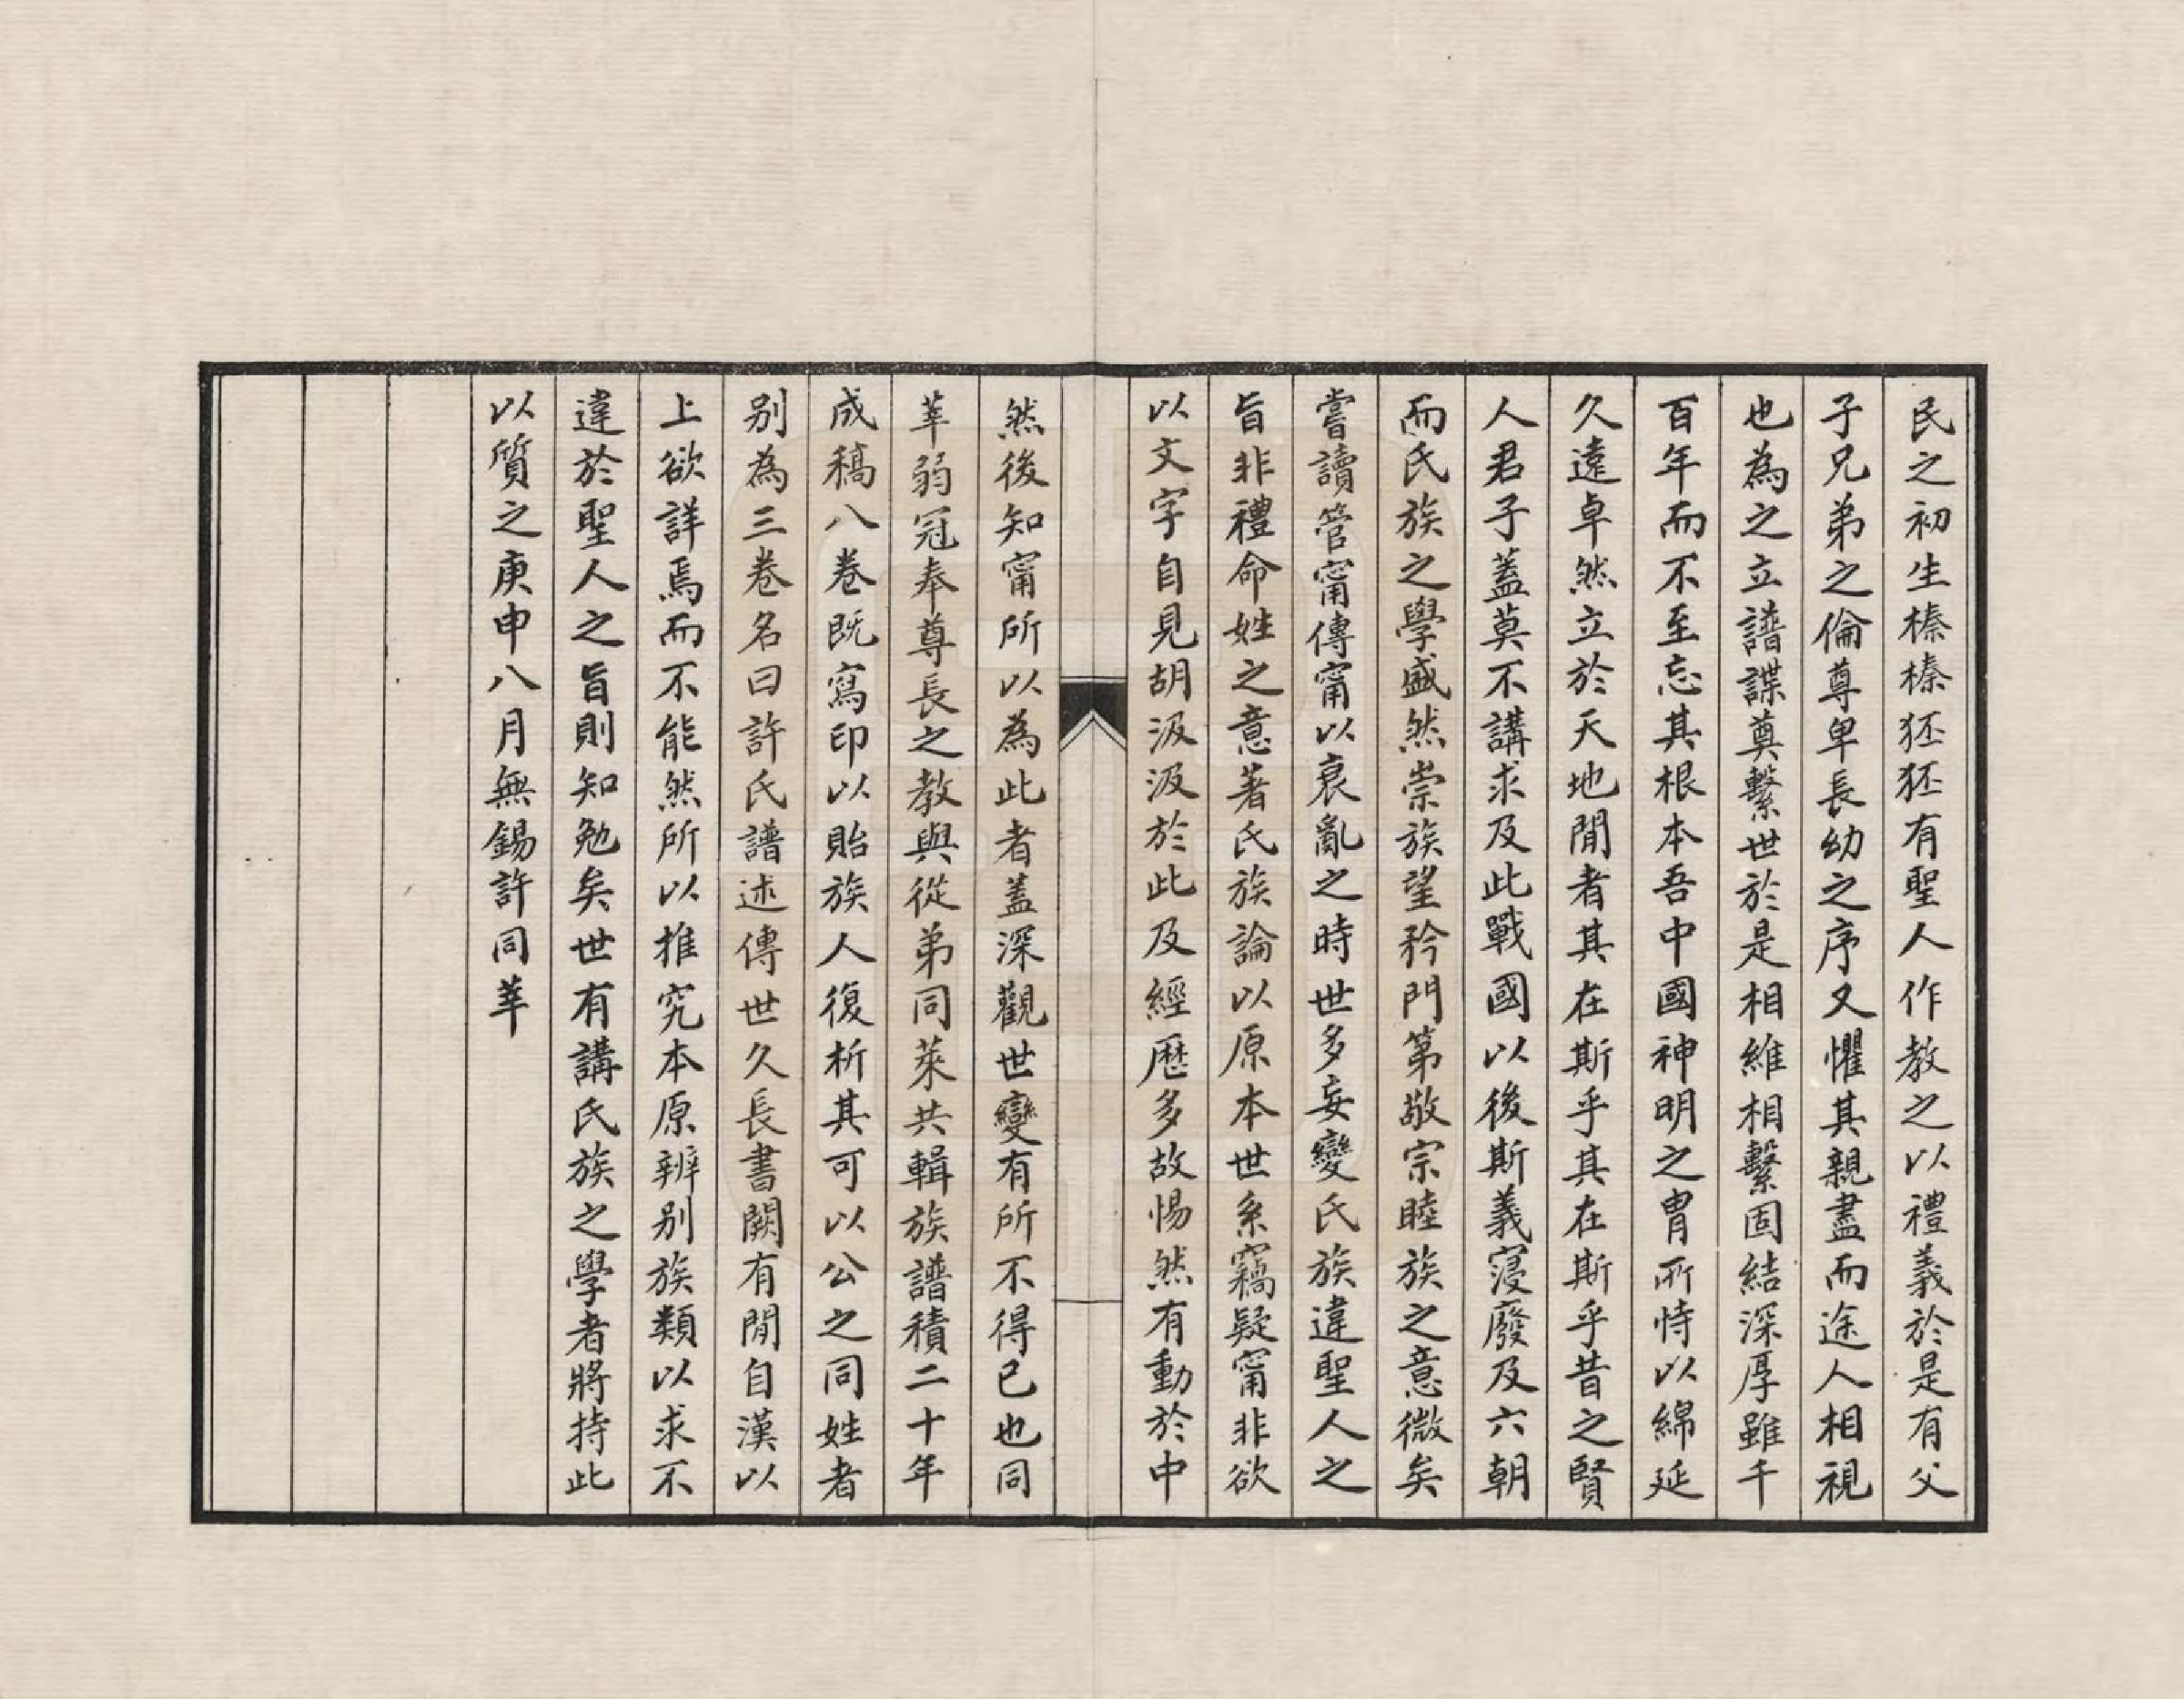 民之初生榛榛狉狉有聖人作教之以禮義於是有父
子兄弟之倫尊卑長幼之序又懼其親盡而途人相視
也為之立譜諜奠繫世於是相維相繫固結深厚雖千
百年而不至忘其根本吾中國神明之胄所恃以綿延
久遠卓然立於天地閒者其在斯乎其在斯乎昔之賢
人君子蓋莫不講求及此戰國以後斯義寖廢及六朝
而氏族之學盛然崇族望矜門第敬宗睦族之意微矣
嘗讀管甯傳甯以衰亂之時世多妄變氏族違聖人之
旨非禮命姓之意著氏族論以原本世系竊疑甯非欲
以文字自見胡汲汲於此及經歷多故惕然有動於中
然後知甯所以為此者蓋深觀世變有所不得已也同
莘弱冠奉尊長之教與從弟同萊共輯族譜積二十年
成稿八卷既寫印以貽族人復析其可以公之同姓者
别為三卷名曰許氏譜述傳世久長書闕有閒自漢以
上欲詳焉而不能然所以推究本原辨别族類以求不
違於聖人之旨則知勉矣世有講氏族之學者將持此
以質之庚申八月無錫許同莘